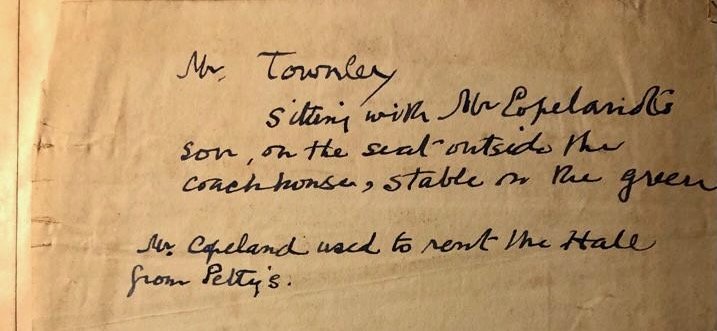 Mr. Townley
sitting with Mr Copeland's
son, on the seat outside the
coach house, stable on the green
Mr. Copeland used to rent the Hall
from Petty's.